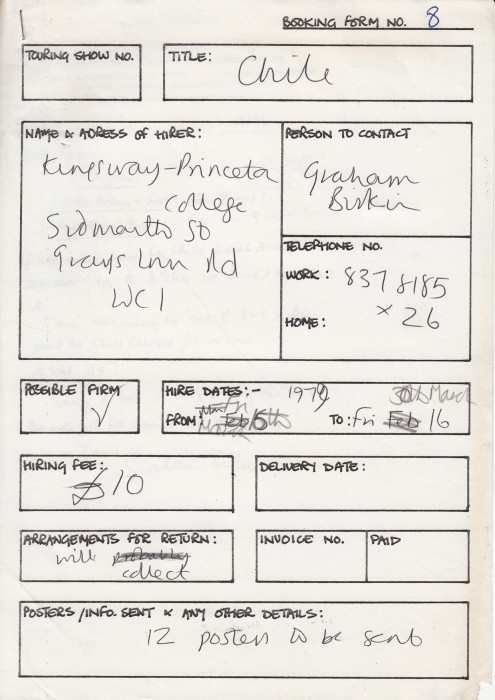 BOOKING FORM NO. 8
TOURING SHOW NO.
TITLE:
Chile
NAME & ADRESS OF HIRER:
Kingsway-Princeton
College
Sidmouth St
Grays Inn Rd
WC1
PERSON TO CONTACT
Graham
Birkin
TELEPHONE NO.
WORK: 837 8185
x 26
HOME:
POSSIBLE FIRM
✓
HIRE DATES:- 1979 30th March
FROM: 16th
March
TO: Fri Feb 16
HIRING FEE:
£10
DELIVERY DATE:
ARRANGEMENTS FOR RETURN:
will probably
collect
INVOICE NO.
PAID
POSTERS/INFO. SENT & ANY OTHER DETAILS:
12 posters to be sent